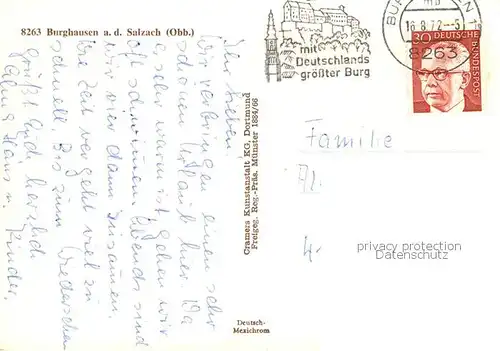 8263 Burghausen a. d. Salzach (Obb.)
Ihr Lieben!
Wir verbringen einen sehr
schönen Urlaub hier. Da
es sehr warm ist gehen wir
oft schwimmen. Abends sind
wir dann zusammen.
Die Zeit vergeht viel zu
schnell. Bis zum Wiedersehen
grüßt Euch herzlich
Hans u. Kinder.
Cramers Kunstanstalt KG, Dortmund
Freigeg. Reg.-Präs. Münster 1884/66
Deutsch-
Mexichrom
mit
Deutschlands
größter Burg
16.8.72
8263
30
DEUTSCHE BUNDESPOST
Familie
privacy protection
AKpool.de